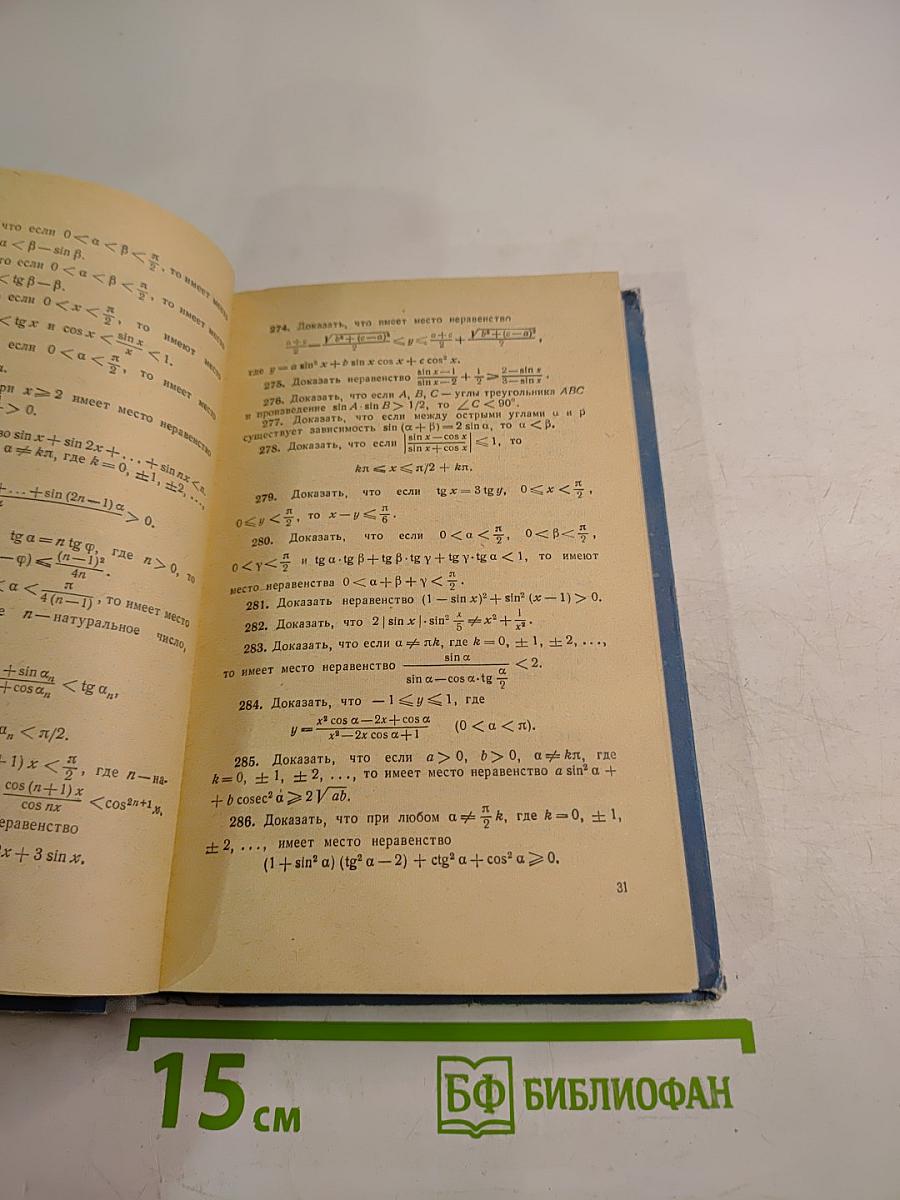 что если 0<α<β<π/2, то имеет место
α<β—sin β.
то если 0<α<β<π/2, то имеет место
<tg β—β.
если 0<x<π/2, то имеют место
<tg x и cos x < sin x/x < 1.
если 0<α<π/2, то имеет место
при x⩾2 имеет место неравенство
>0.
sin x+sin 2x+...+sin nx<n.
α≠kπ, где k=0, ±1, ±2, ...,
+...+sin (2n—1) α > 0.
tg α=n tg φ, где n>0, то
—φ)⩽(n—1)²/4n.
<α<π/4(n—1), то имеет место
n—натуральное число,
+sin αₙ/+cos αₙ < tg αₙ,
αₙ<π/2.
+1) x<π/2, где n—на-
cos (n+1) x/cos nx <cos²ⁿ⁺¹x,
неравенство
x+3 sin x.
274. Доказать, что имеет место неравенство
(a+c)/2 — √(b²+(c—a)²)/2 ⩽ y ⩽ (a+c)/2 + √(b²+(c—a)²)/2,
где y=a sin² x+b sin x cos x+c cos² x.
275. Доказать неравенство (sin x—1)/(sin x—2) + 1/2 ⩾ (2—sin x)/(3—sin x).
276. Доказать, что если A, B, C—углы треугольника ABC
и произведение sin A·sin B>1/2, то ∠C<90°.
277. Доказать, что если между острыми углами α и β
существует зависимость sin (α+β)=2 sin α, то α<β.
278. Доказать, что если |(sin x—cos x)/(sin x+cos x)|⩽1, то
kπ⩽x⩽π/2+kπ.
279. Доказать, что если tg x=3 tg y, 0⩽x<π/2,
0⩽y<π/2, то x—y⩽π/6.
280. Доказать, что если 0<α<π/2, 0<β<π/2,
0<γ<π/2 и tg α·tg β+tg β·tg γ+tg γ·tg α<1, то имеют
место неравенства 0<α+β+γ<π/2.
281. Доказать неравенство (1—sin x)²+sin² (x—1)>0.
282. Доказать, что 2|sin x|·sin² x/5≠x²+1/x².
283. Доказать, что если α≠πk, где k=0, ±1, ±2, ...,
то имеет место неравенство sin α/(sin α—cos α·tg α/2) <2.
284. Доказать, что —1⩽y⩽1, где
y=(x² cos α—2x+cos α)/(x²—2x cos α+1) (0<α<π).
285. Доказать, что если a>0, b>0, α≠kπ, где
k=0, ±1, ±2, ..., то имеет место неравенство a sin² α+
+b cosec² α⩾2√ab.
286. Доказать, что при любом α≠π/2 k, где k=0, ±1,
±2, ..., имеет место неравенство
(1+sin² α) (tg² α—2)+ctg² α+cos² α⩾0.
31
15 см
БФ БИБЛИОФАН